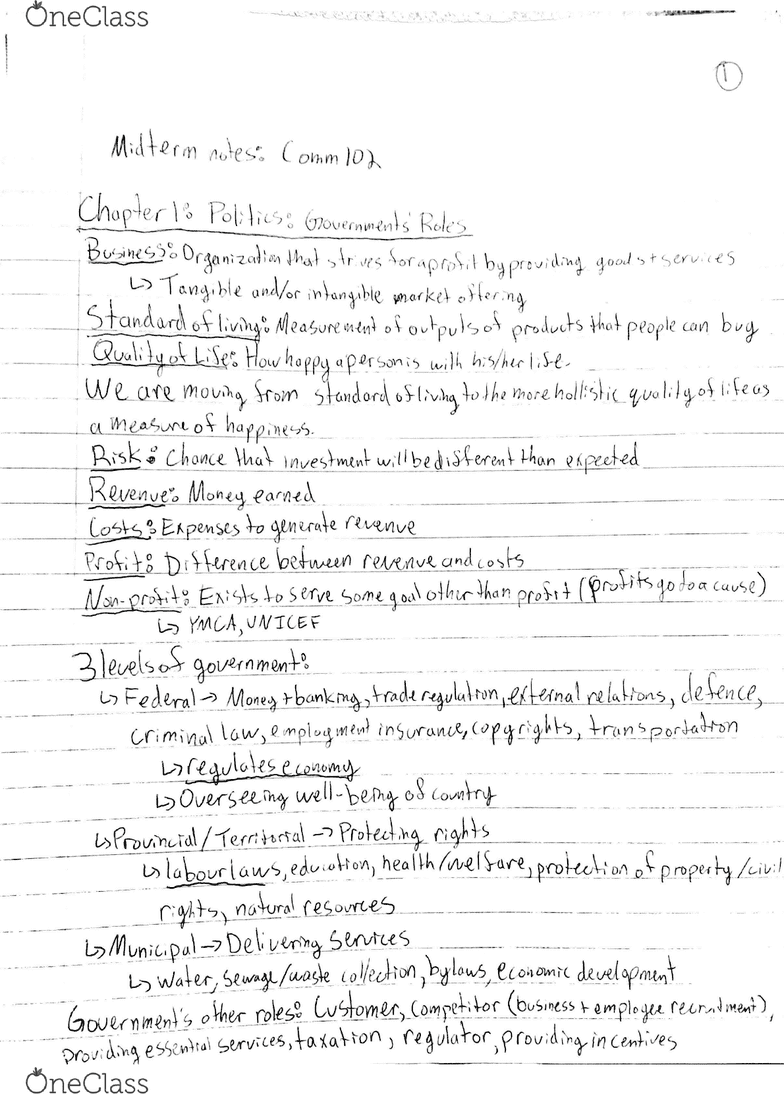 OneClass
1
Midterm notes: Comm 102
Chapter 1: Politics: Governments' Roles
Business: Organization that strives for a profit by providing goods + services
↳ Tangible and/or intangible market offering
Standard of living: Measurement of outputs of products that people can buy
Quality of Life: How happy a person is with his/her life.
We are moving from standard of living to the more hollistic quality of life as
a measure of happiness.
Risk: Chance that investment will be different than expected
Revenue: Money earned
Costs: Expenses to generate revenue
Profit: Difference between revenue and costs
Non-profit: Exists to serve some goal other than profit (profits go to a cause)
↳ YMCA, UNICEF
3 levels of government:
↳ Federal → Money + banking, trade regulation, external relations, defence,
criminal law, employment insurance, copyrights, transportation
↳ regulates economy
↳ Overseeing well-being of country
↳ Provincial/Territorial → Protecting rights
↳ labour laws, education, health/welfare, protection of property/civil
rights, natural resources
↳ Municipal → Delivering services
↳ Water, sewage/waste collection, bylaws, economic development
Government's other roles: Customer, competitor (business + employee recruitment),
providing essential services, taxation, regulator, providing incentives
OneClass